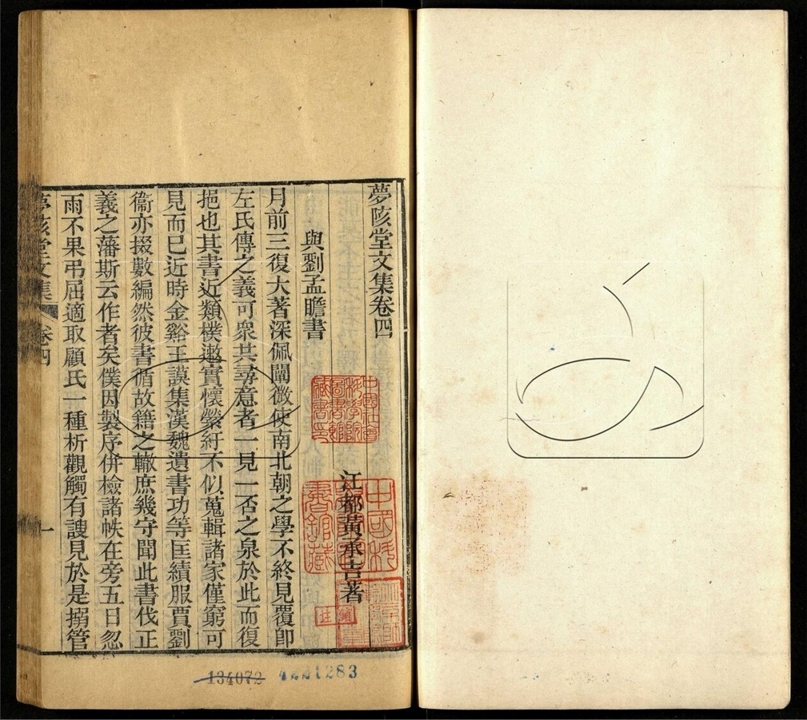 夢陔堂文集卷四
江都黃承吉著
與劉孟瞻書
月前三復大著深佩闡微使南北朝之學不終見覆卽
左氏傳之義可衆其尋意者一見一否之泉於此而復
挹也其書近類樸遬實懷縈紆不似蒐輯諸家僅窮可
見而已近時金谿王謨集漢魏遺書功等匡績服賈劉
衞亦掇數編然彼書循故籍之轍庶幾守聞此書伐正
義之藩斯云作者矣僕因製序併檢諸帙在旁五日忽
雨不果弔屈適取顧氏一種析觀觸有謏見於是搦管
夢陔堂文集 卷四 一
134072 4221283